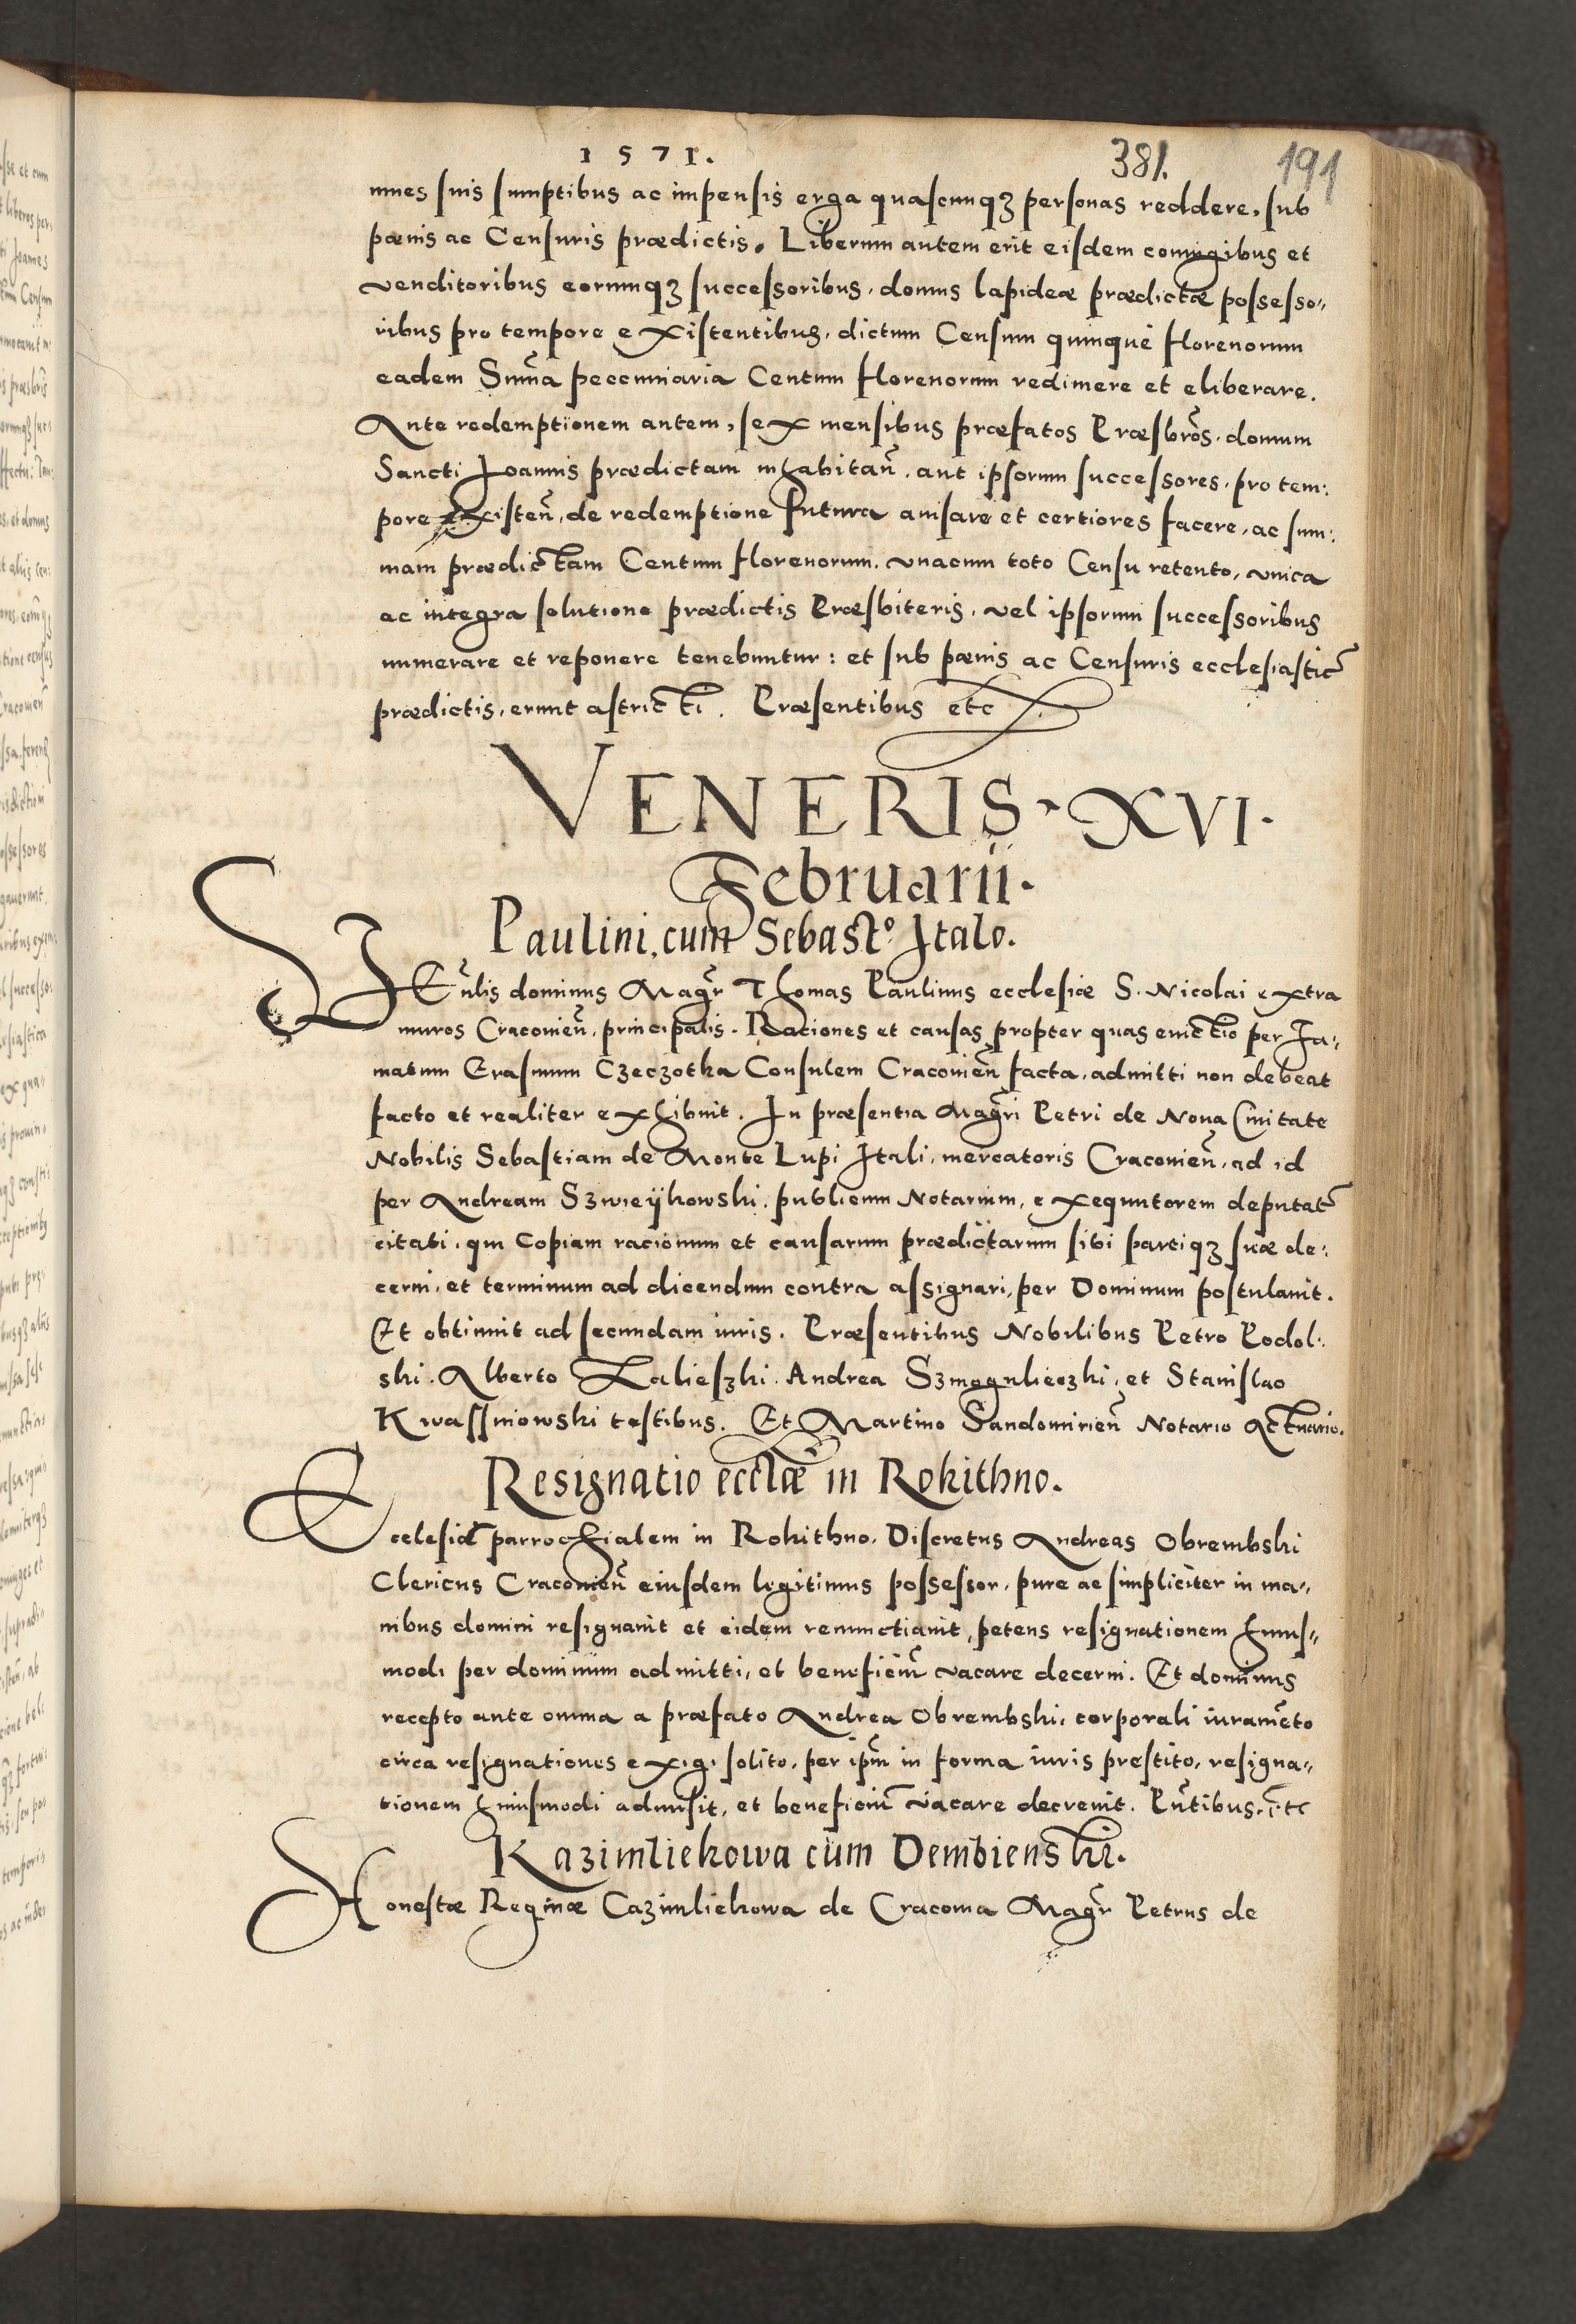 1571.
381. 191
munes suis sumptibus ac impensis erga quascunq3 personas reddere, sub
pænis ac Censuris prædictis. Liberum autem erit eisdem coniugibus et
venditoribus eorumq3 successoribus, domus lapideæ prædictæ possesso„
ribus pro tempore existentibus, dictum Censum quinque florenorum
eadem Sum̃a peccuniaria Centum florenorum redimere et eliberare.
Ante redemptionem autem, sex mensibus præfatos Præsbr̃os, domum
Sancti Joannis prædictam inhabitañ, aut ipsorum successores, pro tem:
pore existeñ, de redemptione futura auisare et certiores facere, ac sum:
mam prædictam Centum florenorum, vnacum toto Censu retento, vnica
ac integra solutione prædictis Præsbiteris, vel ipsorum successoribus
numerare et reponere tenebuntur: et sub pænis ac Censuris ecclesiastic̃
prædictis, erunt astricti. Præsentibus etc
VENERIS · XVI ·
Februarii.
Paulini, cum Sebastº Italo.
Veñlis dominus Magr̃ Thomas Paulinus ecclesiæ S. Nicolai extra
muros Cracouieñ, principalis. Raciones et causas propter quas euictio per Fa„
matum Erasmum Czeczotka Consulem Cracouieñ facta, admitti non debeat
facto et realiter exhibuit. In præsentia Magr̃i Petri de Noua Ciuitate
Nobilis Sebastiani de Monte Lupi Itali, mercatoris Cracouieñ, ad id
per Andream Szwieijkowski, publicum Notarium, exequutorem deputat̃
citati, qui Copiam racionum et causarum prædictarum sibi partiq3 suæ de:
cerni, et terminum ad dicendum contra assignari, per Dominum postulauit.
Et obtinuit ad secundam iuris. Præsentibus Nobilibus Petro Podol:
ski. Alberto Zalieszki. Andrea Szmogulieczki, et Stanislao
Kwassniowski testibus. Et Martino Sandomirieñ Notario Actuario.
Resignatio ecclæ̃ in Rokithno.
Ecclesiã parrochialem in Rokithno. Discretus Andreas Obrembski
Clericus Cracouieñ eiusdem legitimus possessor, pure ac simpliciter in ma„
nibus domini resignauit et eidem renunctiauit, petens resignationem huius„
modi per dominum admitti, et beneficiũ vacare decerni. Et dominus
recepto ante omnia a præfato Andrea Obrembski, corporali iuramẽto
circa resignationes exigi solito, per ip̃m in forma iuris prestito, resigna„
tionem huiusmodi admisit, et beneficiũ vacare decreuit. Pñtibus. etc
Kazimliekowa cum Dembienski.
Honestæ Reginæ Cazimliekowa de Cracouia Magr̃ Petrus de